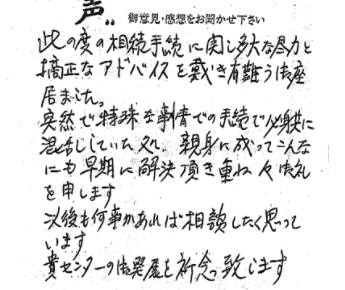 声
御意見・感想をお聞かせ下さい
此の度の相続手続に関し多大な尽力と
適正なアドバイスを戴き有難う御座
居ました。
突然で特殊な事情での手続で心身共に
混乱していた処、親身に成ってこんな
にも早期に解決頂き重ね々御礼
を申します
以後も何事かあれば相談したく思って
います
貴センターの御発展を祈念致します